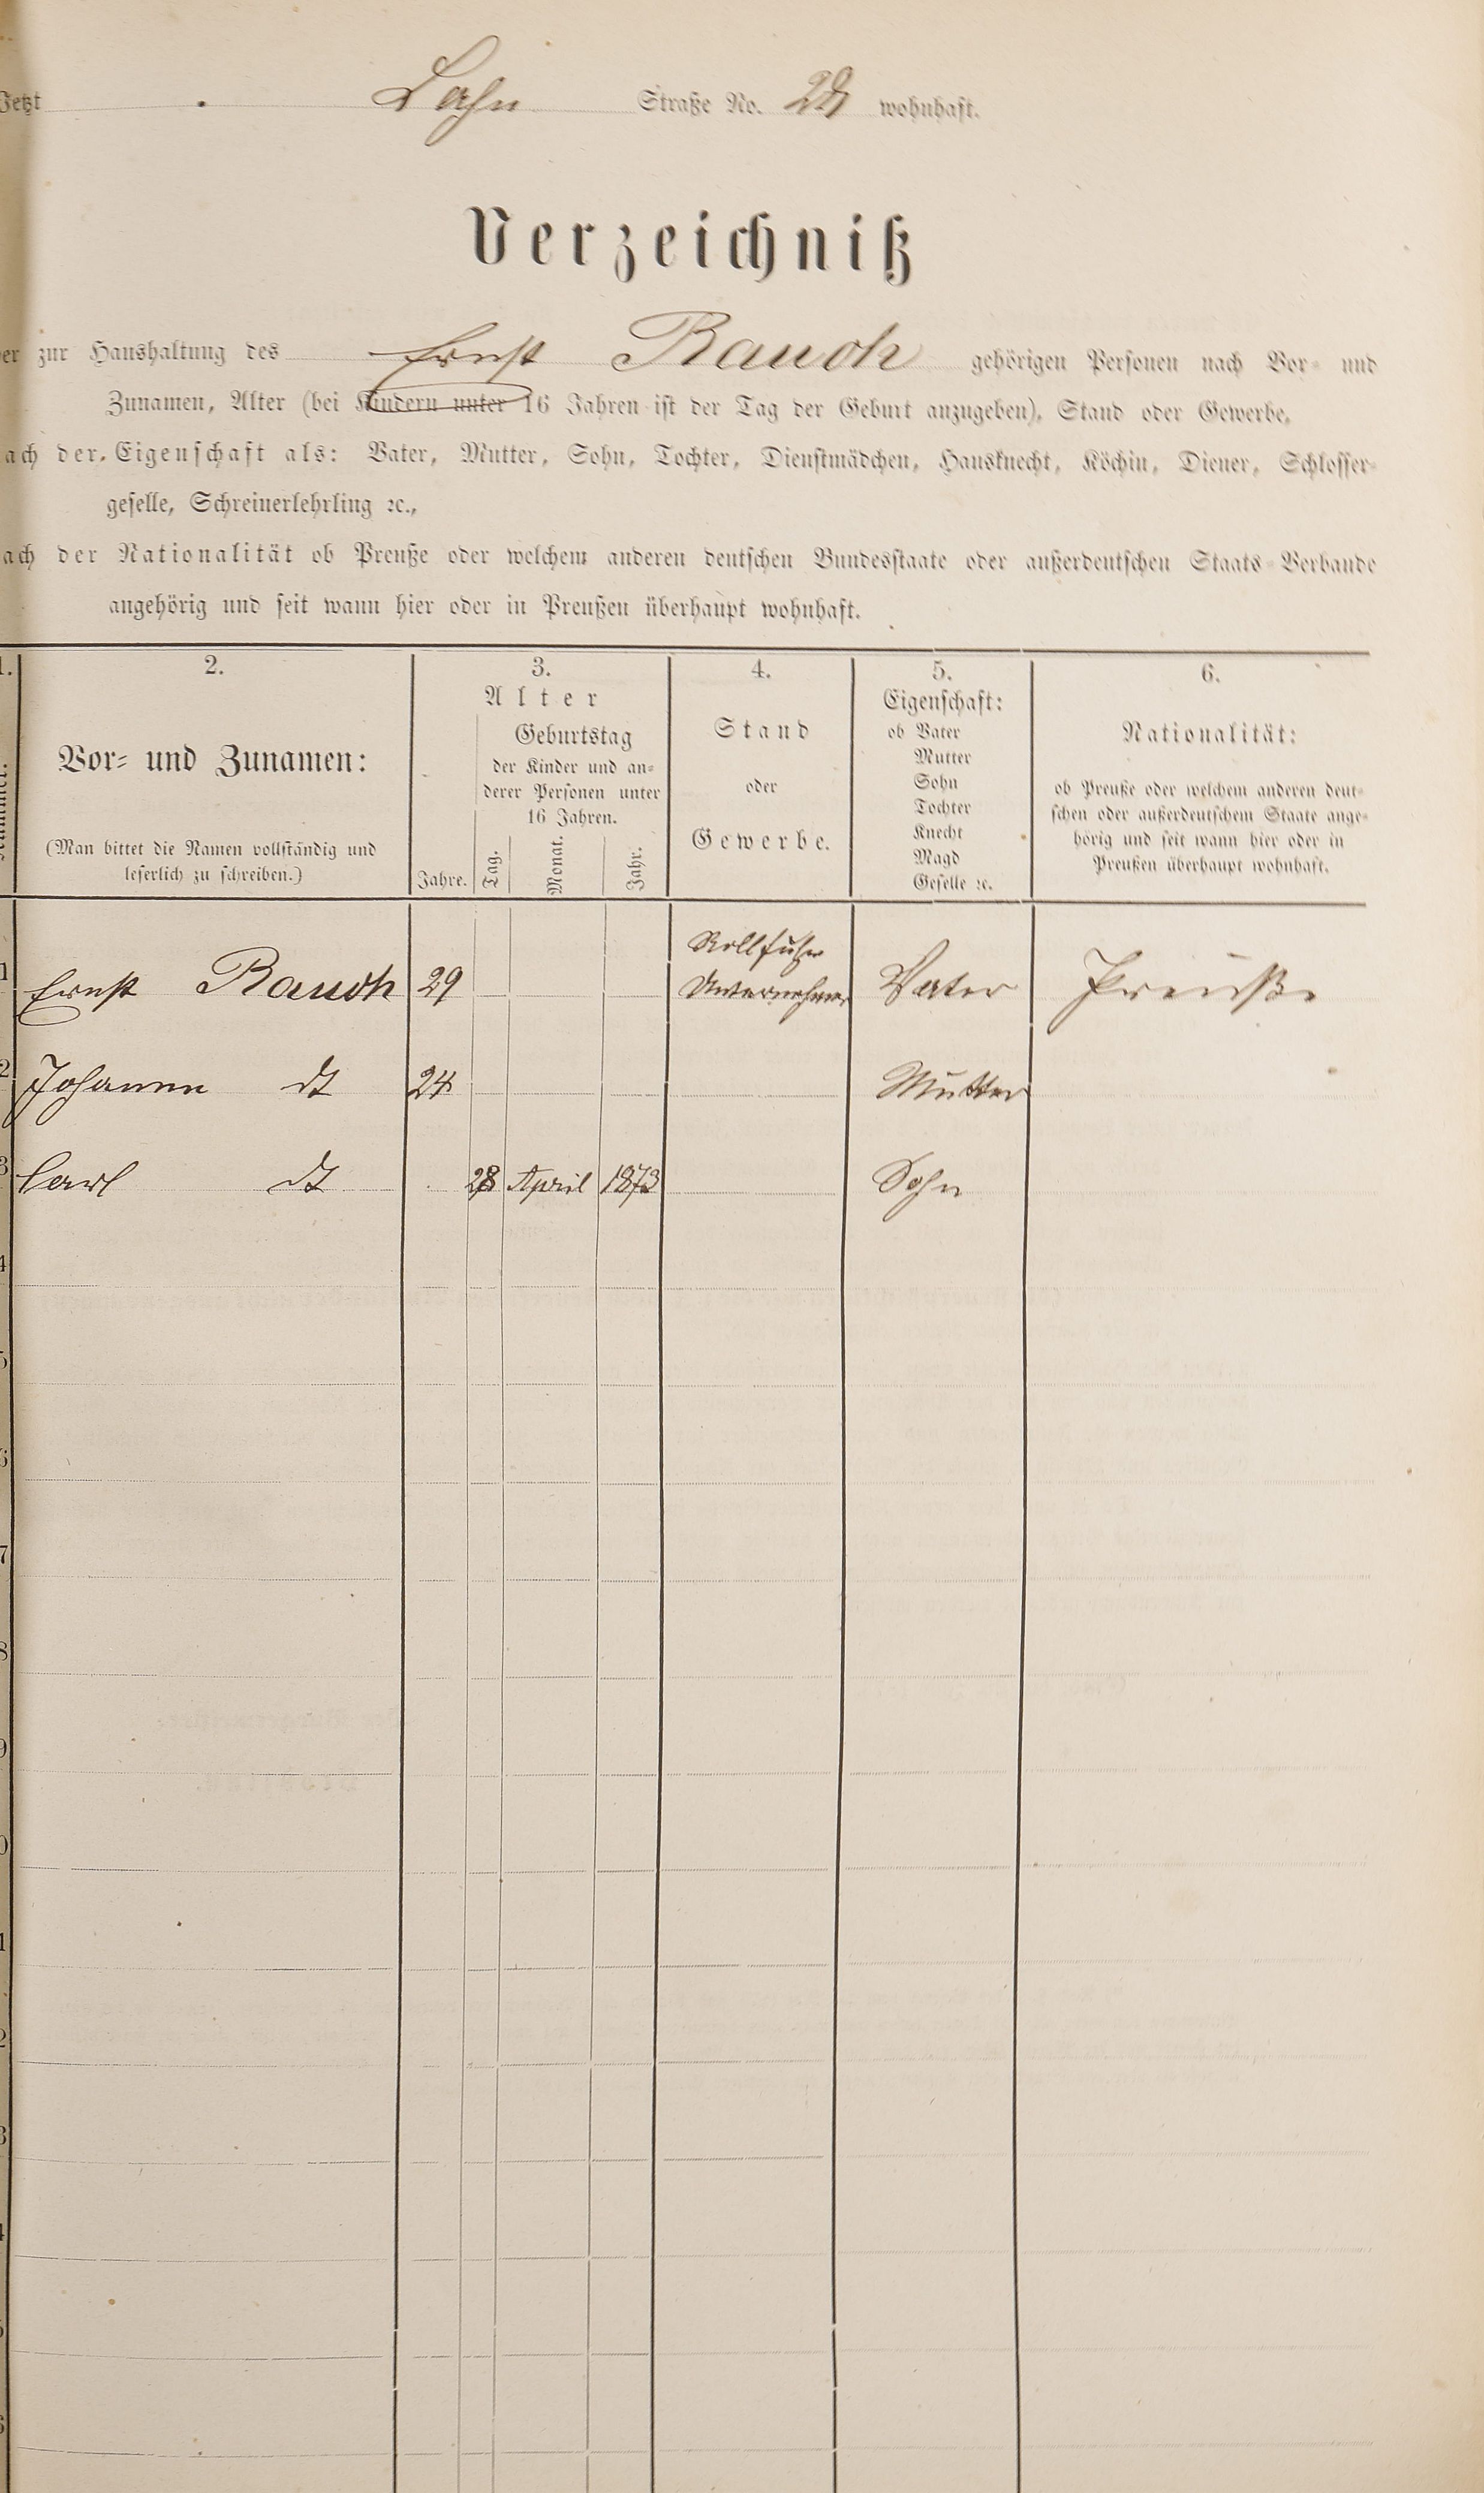 Jetzt Lahn Straße No. 28 wohnhaft.
Verzeichniß
er zur Haushaltung des Ernst Rauch gehörigen Personen nach Vor- und
Zunamen, Alter (bei Kindern unter 16 Jahren ist der Tag der Geburt anzugeben), Stand oder Gewerbe,
ach der Eigenschaft als: Vater, Mutter, Sohn, Tochter, Dienstmädchen, Hausknecht, Köchin, Diener, Schlosser-
geselle, Schreinerlehrling ꝛc.,
ach der Nationalität ob Preuße oder welchem anderen deutschen Bundesstaate oder außerdeutschen Staats-Verbande
angehörig und seit wann hier oder in Preußen überhaupt wohnhaft.
1.
2.
Vor- und Zunamen:
(Man bittet die Namen vollständig und
leserlich zu schreiben.)
3.
Alter
Geburtstag
der Kinder und an-
derer Personen unter
16 Jahren.
Jahre. Tag. Monat. Jahr.
4.
Stand
oder
Gewerbe.
5.
Eigenschaft:
ob Vater
Mutter
Sohn
Tochter
Knecht
Magd
Geselle ꝛc.
6.
Nationalität:
ob Preuße oder welchem anderen deut-
schen oder außerdeutschem Staate ange-
hörig und seit wann hier oder in
Preußen überhaupt wohnhaft.
1 Ernst Rauch 29 Rollfuhr Unternehmer Vater Preuße
2 Johanna dt 24 Mutter
3 Carl dt 28 April 1873 Sohn
4
5
6
7
8
9
0
1
2
3
4
5
6